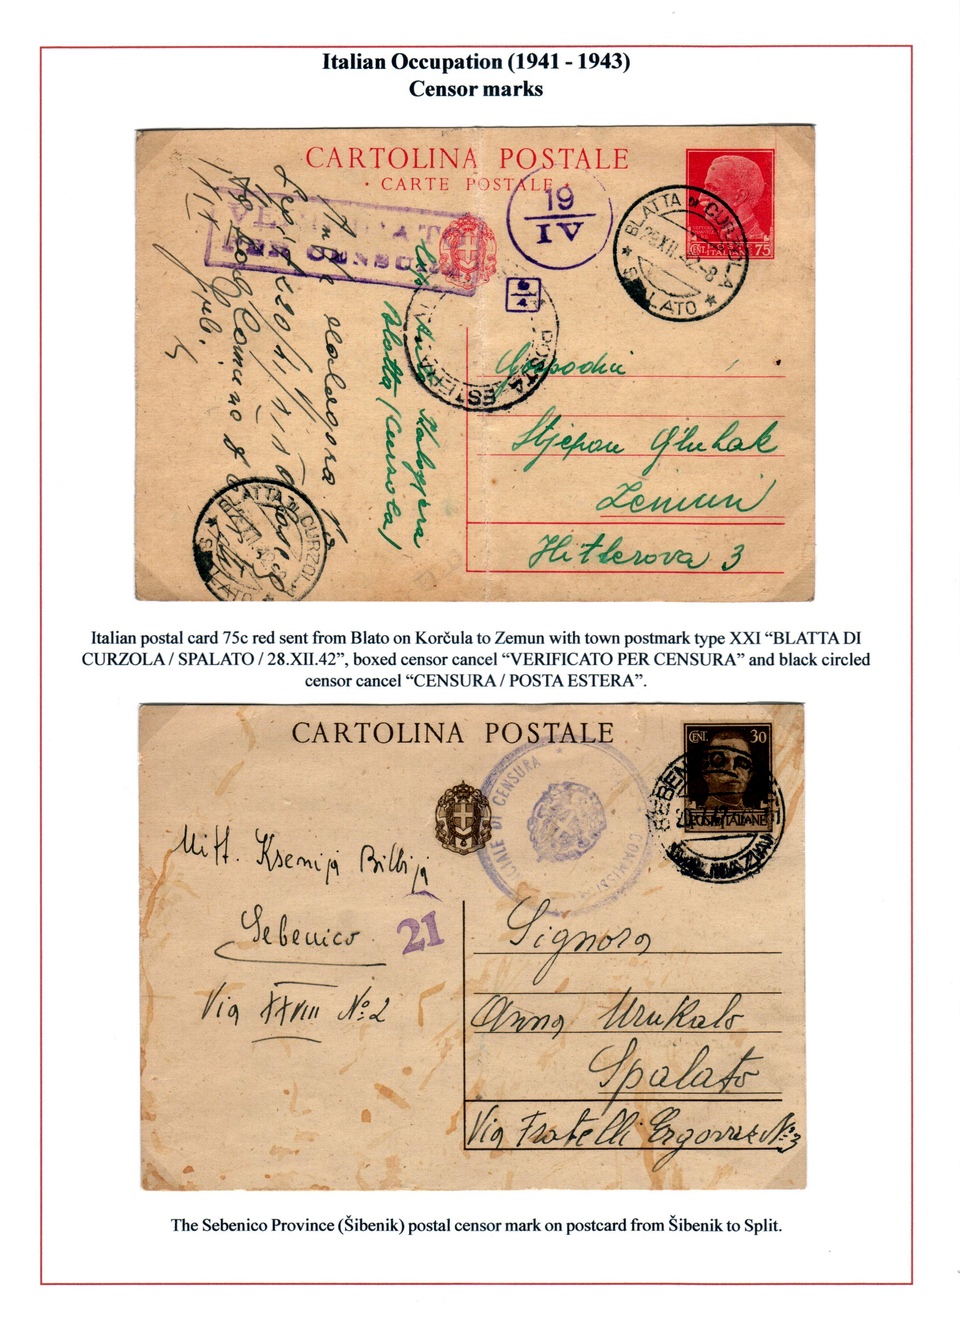 Italian Occupation (1941 - 1943)
Censor marks
CARTOLINA POSTALE
• CARTE POSTALE
VERIFICATO
PER CENSURA
19
IV
9
4
BLATTA DI CURZOLA
28XII.42-8
★ SPALATO ★
CENT. 75
POSTA ESTERA
Gospodin
Stjepan Gluhak
Zemun
Hitlerova 3
Blatta (Curzola)
BLATTA DI CURZOLA
★ SPALATO ★
Italian postal card 75c red sent from Blato on Korčula to Zemun with town postmark type XXI “BLATTA DI
CURZOLA / SPALATO / 28.XII.42”, boxed censor cancel “VERIFICATO PER CENSURA” and black circled
censor cancel “CENSURA / POSTA ESTERA”.
CARTOLINA POSTALE
CENT. 30
POSTE ITALIANE
CIALE DI CENSURA
COMMISSI
SEBENICO
Mitt. Ksenija Bilbija
Sebenico
21
Via XXVIII No. 2
Signora
Anna Mrukalo
Spalato
Via Fratelli No. 3
The Sebenico Province (Šibenik) postal censor mark on postcard from Šibenik to Split.